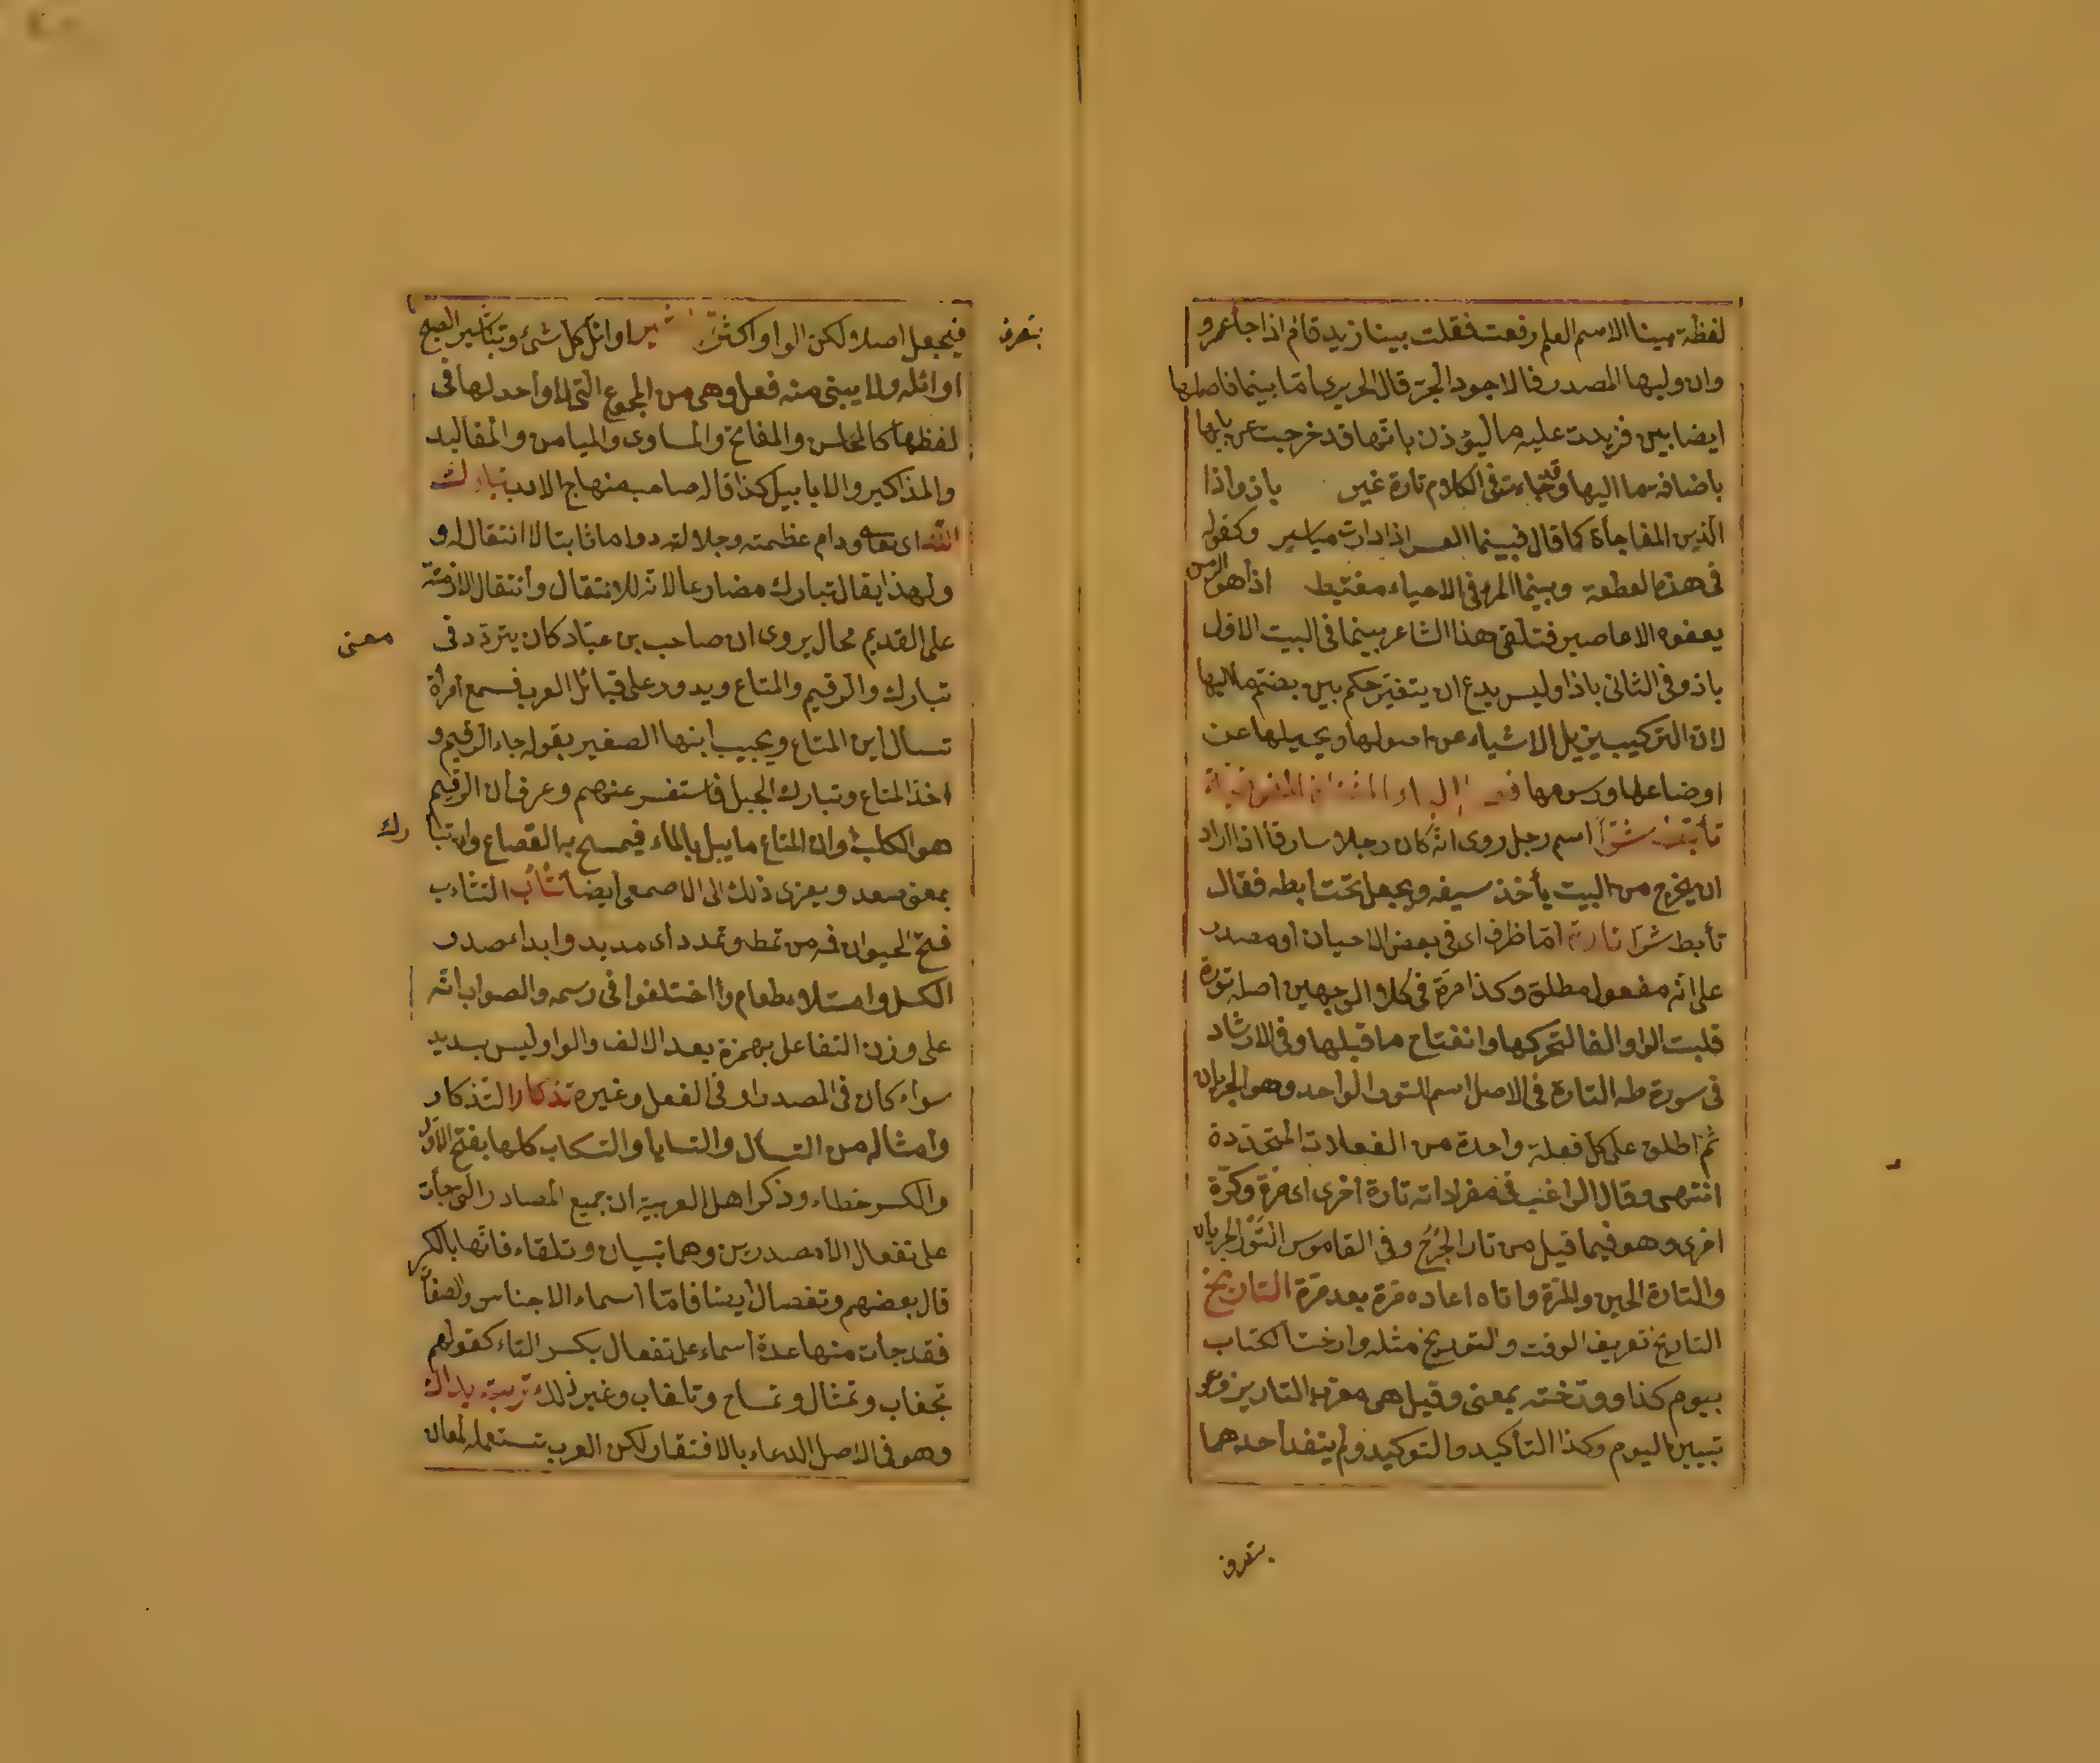 لفظة بينا الاسم العلم رفعت فقلت بينا زيد قام اذا جاء عمرو
وان وليها المصدر فالاجود الجر قال الحريرى امّا بينما فاصلها
ايضا بين فزيدت عليه ما ليؤذن بانها قد خرجت عن بابها
باضافة ما اليها وقد جاءت فى الكلام تارة غير باذ واذا
الذين المفاجأة كما قال فبينما العسر اذا دارت مياسير وكقوله
فى هذه القطعة وبينما المرء فى الاحياء مغتبط اذا هو الرمس
يعفوه الاعاصير فتلقى هذا الشاعر بينما فى البيت الاول
باذ وفى الثانى باذا وليس بدع ان يتغير حكم بين بضم ما اليها
لان التركيب يزيل الاشياء عن اصولها ويحيلها عن
اوضاعها ورسومها
تأبط شرّا اسم رجل روى انه كان رجلا سارقا اذا اراد
ان يخرج من البيت يأخذ سيفه ويجعل تحت ابطه فقال
تأبط شرا تارة امّا ظرف اى فى بعض الاحيان او مصدر
على انه مفعول مطلق وكذا مرّة فى كلا الوجهين اصله تورة
قلبت الواو الفا لتحركها وانفتاح ما قبلها وفى الارشاد
فى سورة طه التارة فى الاصل اسم التور الواحد وهو الجريان
ثم اطلق على كل فعلة واحدة من الفعلات المتجددة
انتهى وقال الراغب فى مفرداته تارة اخرى اى مرة وكرّة
اخرى وهو فيما قيل من تار الجرح وفى القاموس التور الجريان
والتارة الحين والمرّة واتاه اعاده مرّة بعد مرّة التاريخ
التاريخ تعريف الوقت والتوريخ مثله وارخت الكتاب
بيوم كذا وورخته بمعنى وقيل هى معرب
تبيين اليوم وكذا التأكيد والتوكيد ولم يتفد احدهما
بتعرف
بتعرف
فيجعل اصلا ولكن الواو اكثر اوائل كل شىء وتباشير الصبح
اوائله ولا يبنى منه فعل وهى من الجموع التى لا واحد لها فى
لفظها كالمحاسن والمفاتح والمساوى والميامن والمقاليد
والمذاكير والابابيل كذا قاله صاحب منهاج الادب تبارك
الله اى تعالى ودام عظمته وجلالته دواما ثابتا لا انتقال له و
ولهذا يقال تبارك مضارعا لانه للانتقال وانتقال الازمنة
على القديم محال يروى ان صاحب بن عبّاد كان يتردّد فى معنى
تبارك والرقيم والمتاع ويدور على قبائل العرب فسمع امرأة
تسال اين المتاع ويجيب ابنها الصغير بقوله جاء الرقيم و
اخذ المتاع وتبارك الجبل فاستفسر عنهم وعرف ان الرقيم
هو الكلب وان المتاع ما يبل بالماء فيمسح به القصاع وان تبارك
بمعنى صعد ويعزى ذلك الى الاصمعى ايضا تثأب التثاءب
فتح الحيوان فمه من تمط وتمدد اى مديد وابداء مصدر
الكسل وامتلاء طعام واختلفوا فى رسمه والصواب انّه
على وزن التفاعل بهمزة بعد الالف والواو ليس بسديد
سواء كان فى المصدر او فى الفعل وغيره تذكار التذكار
وامثاله من التسأل والتسايا والتسكاب كلها بفتح الاول
والكسر خطاء وذكر اهل العربية ان جميع المصادر التى جأت
على تفعال الا مصدرين وهما تبيان وتلقاء فانّها بالكسر
قال بعضهم وتفصال ايضا فامّا اسماء الاجناس والصفات
فقد جأت منها عدة اسماء على تفعال بكسر التاء كقولهم
تجفاف وتمثال وتمساح وتلقاب وغير ذلك تربت يداك
وهو فى الاصل الدعاء بالافتقار لكن العرب تستعمله لمعان